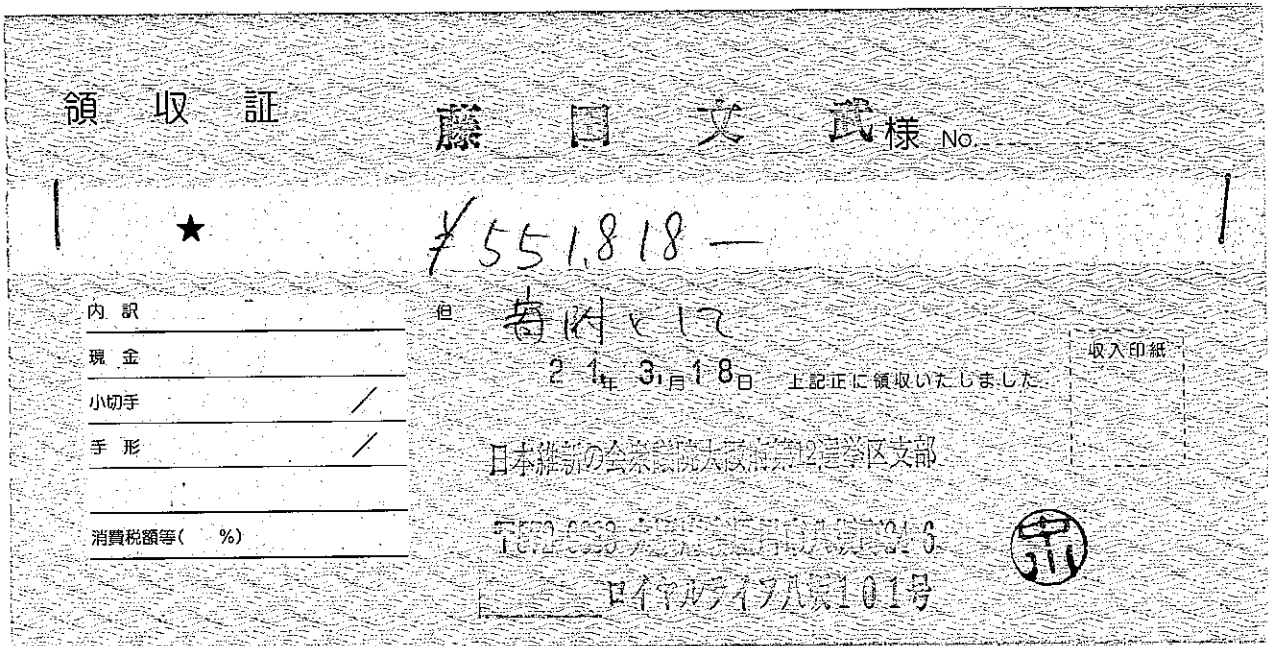 領収証
藤田文武様 No.
★ ¥551,818―
内訳
現金
小切手 /
手形 /
消費税額等( %)
但 寄附として
21年3月18日 上記正に領収いたしました
収入印紙
日本維新の会衆議院大阪府第12選挙区支部
〒572-
ロイヤルライフ八坂101号